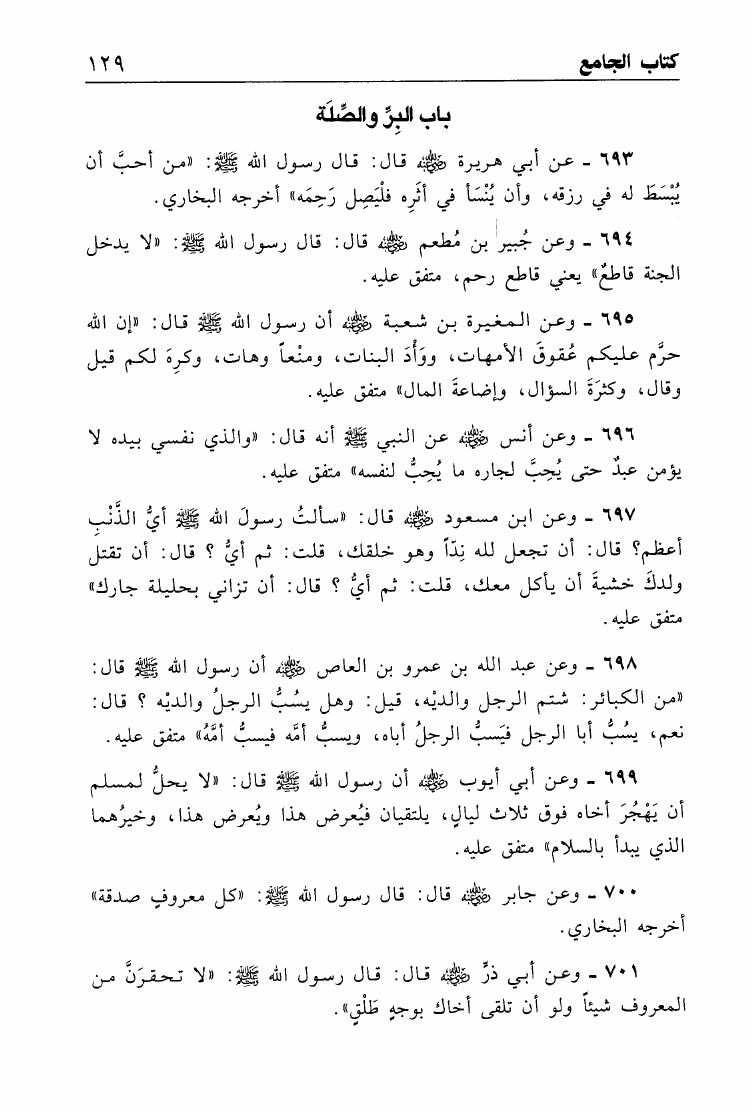 كتاب الجامع ١٢٩
باب البِرِّ والصِّلَة
٦٩٣ ـ عن أبي هريرة ﵁ قال: قال رسول الله ﷺ: «من أحبَّ أن
يُبْسَطَ له في رزقه، وأن يُنْسَأ في أثَرِه فلْيَصِل رَحِمَه» أخرجه البخاري.
٦٩٤ ـ وعن جُبير بن مُطعم ﵁ قال: قال رسول الله ﷺ: «لا يدخل
الجنة قاطعٌ» يعني قاطع رحم، متفق عليه.
٦٩٥ ـ وعن المغيرة بن شعبة ﵁ أن رسول الله ﷺ قال: «إن الله
حرَّم عليكم عُقوقَ الأمهات، ووَأْدَ البنات، ومنْعاً وهات، وكرِهَ لكم قيل
وقال، وكثرَةَ السؤال، وإضاعةَ المال» متفق عليه.
٦٩٦ ـ وعن أنس ﵁ عن النبي ﷺ أنه قال: «والذي نفسي بيده لا
يؤمن عبدٌ حتى يُحِبَّ لجاره ما يُحِبُّ لنفسه» متفق عليه.
٦٩٧ ـ وعن ابن مسعود ﵁ قال: «سألتُ رسولَ الله ﷺ أيُّ الذَّنْبِ
أعظم؟ قال: أن تجعل لله نِدّاً وهو خلقك، قلت: ثم أيُّ ؟ قال: أن تقتل
ولدكَ خشيةَ أن يأكل معك، قلت: ثم أيُّ ؟ قال: أن تزاني بحليلة جارك»
متفق عليه.
٦٩٨ ـ وعن عبد الله بن عمرو بن العاص ﵁ أن رسول الله ﷺ قال:
«من الكبائر: شتم الرجل والديْه، قيل: وهل يسُبُّ الرجلُ والديْه ؟ قال:
نعم، يسُبُّ أبا الرجل فيَسبُّ الرجلُ أباه، ويسبُّ أمَّه فيسبُّ أمَّهُ» متفق عليه.
٦٩٩ ـ وعن أبي أيوب ﵁ أن رسول الله ﷺ قال: «لا يحلُّ لمسلم
أن يَهْجُرَ أخاه فوق ثلاث ليالٍ، يلتقيان فيُعرض هذا ويُعرض هذا، وخيرُهما
الذي يبدأ بالسلام» متفق عليه.
٧٠٠ ـ وعن جابر ﵁ قال: قال رسول الله ﷺ: «كل معروفٍ صدقة»
أخرجه البخاري.
٧٠١ ـ وعن أبي ذرٍّ ﵁ قال: قال رسول الله ﷺ: «لا تحقرَنَّ من
المعروف شيئاً ولو أن تلقى أخاك بوجهٍ طَلْقٍ».